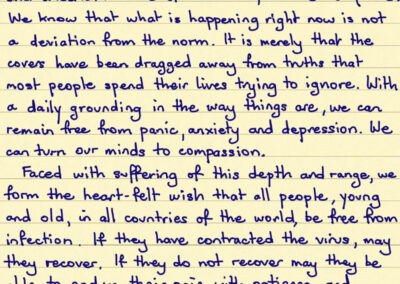 We know that what is happening right now is not
a deviation from the norm. It is merely that the
covers have been dragged away from truths that
most people spend their lives trying to ignore. With
a daily grounding in the way things are, we can
remain free from panic, anxiety and depression. We
can turn our minds to compassion.
Faced with suffering of this depth and range, we
form the heart-felt wish that all people, young
and old, in all countries of the world, be free from
infection. If they have contracted the virus, may
they recover. If they do not recover may they be